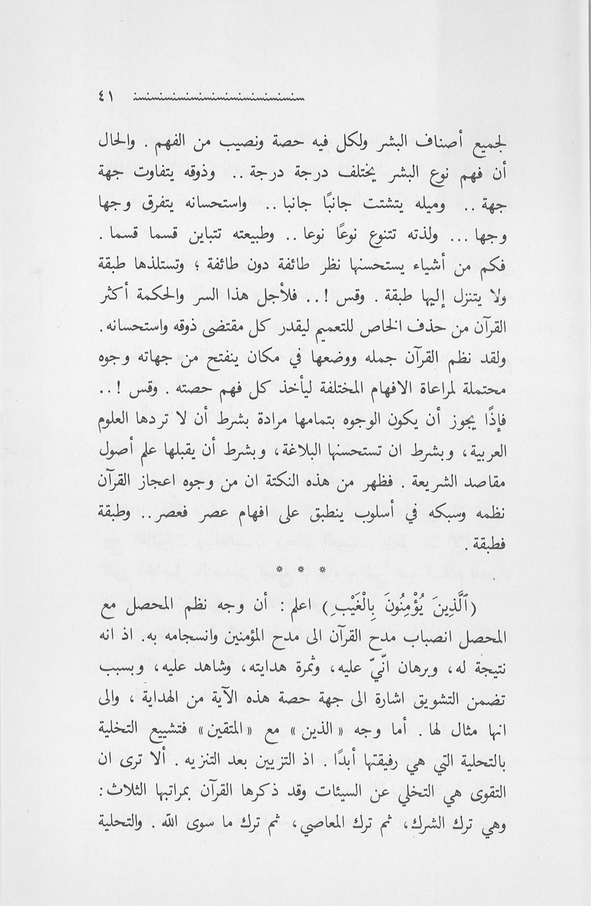 ٤١
لجميع أصناف البشر ولكل فيه حصة ونصيب من الفهم . والحال
أن فهم نوع البشر يختلف درجة درجة .. وذوقه يتفاوت جهة
جهة .. وميله يتشتت جانبًا جانبا .. واستحسانه يتفرق وجها
وجها ... ولذته تتنوع نوعًا نوعا .. وطبيعته تتباين قسما قسما .
فكم من أشياء يستحسنها نظر طائفة دون طائفة ؛ وتستلذها طبقة
ولا يتنزل إليها طبقة . وقس !.. فلأجل هذا السر والحكمة أكثر
القرآن من حذف الخاص للتعميم ليقدر كل مقتضى ذوقه واستحسانه.
ولقد نظم القرآن جمله ووضعها في مكان ينفتح من جهاته وجوه
محتملة لمراعاة الافهام المختلفة ليأخذ كل فهم حصته . وقس !..
فإذًا يجوز أن يكون الوجوه بتمامها مرادة بشرط أن لا تردها العلوم
العربية ، وبشرط ان تستحسنها البلاغة، وبشرط أن يقبلها علم أصول
مقاصد الشريعة . فظهر من هذه النكتة ان من وجوه اعجاز القرآن
نظمه وسبكه في أسلوب ينطبق على افهام عصر فعصر.. وطبقة
فطبقة .
* * *
(ٱلَّذِينَ يُؤْمِنُونَ بِالْغَيْبِ) اعلم: أن وجه نظم المحصل مع
المحصل انصباب مدح القرآن الى مدح المؤمنين وانسجامه به. اذ انه
نتيجة له، وبرهان انّيّ عليه، وثمرة هدايته، وشاهد عليه، وبسبب
تضمن التشويق اشارة الى جهة حصة هذه الآية من الهداية ، والى
انها مثال لها . أما وجه «الذين» مع «المتقين» فتشييع التخلية
بالتحلية التي هي رفيقتها أبدًا . اذ التزيين بعد التنزيه . ألا ترى ان
التقوى هي التخلي عن السيئات وقد ذكرها القرآن بمراتبها الثلاث:
وهي ترك الشرك، ثم ترك المعاصي، ثم ترك ما سوى الله . والتحلية